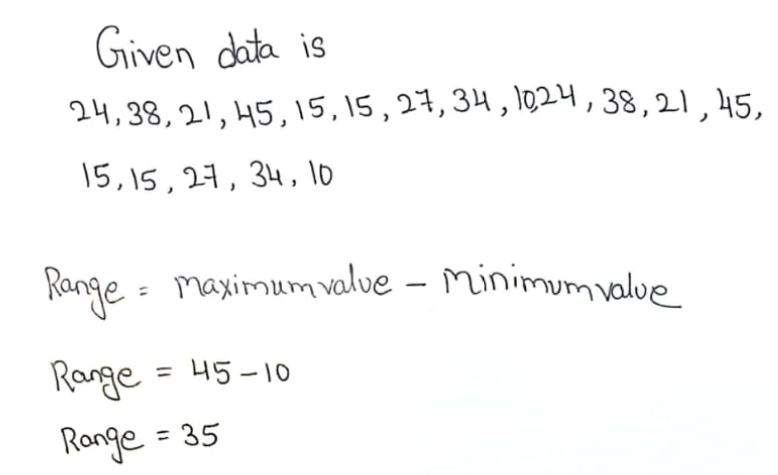 Given data is
24, 38, 21, 45, 15, 15, 27, 34, 10,24, 38, 21, 45,
15, 15, 27, 34, 10
Range = maximum value - Minimum value
Range = 45-10
Range = 35